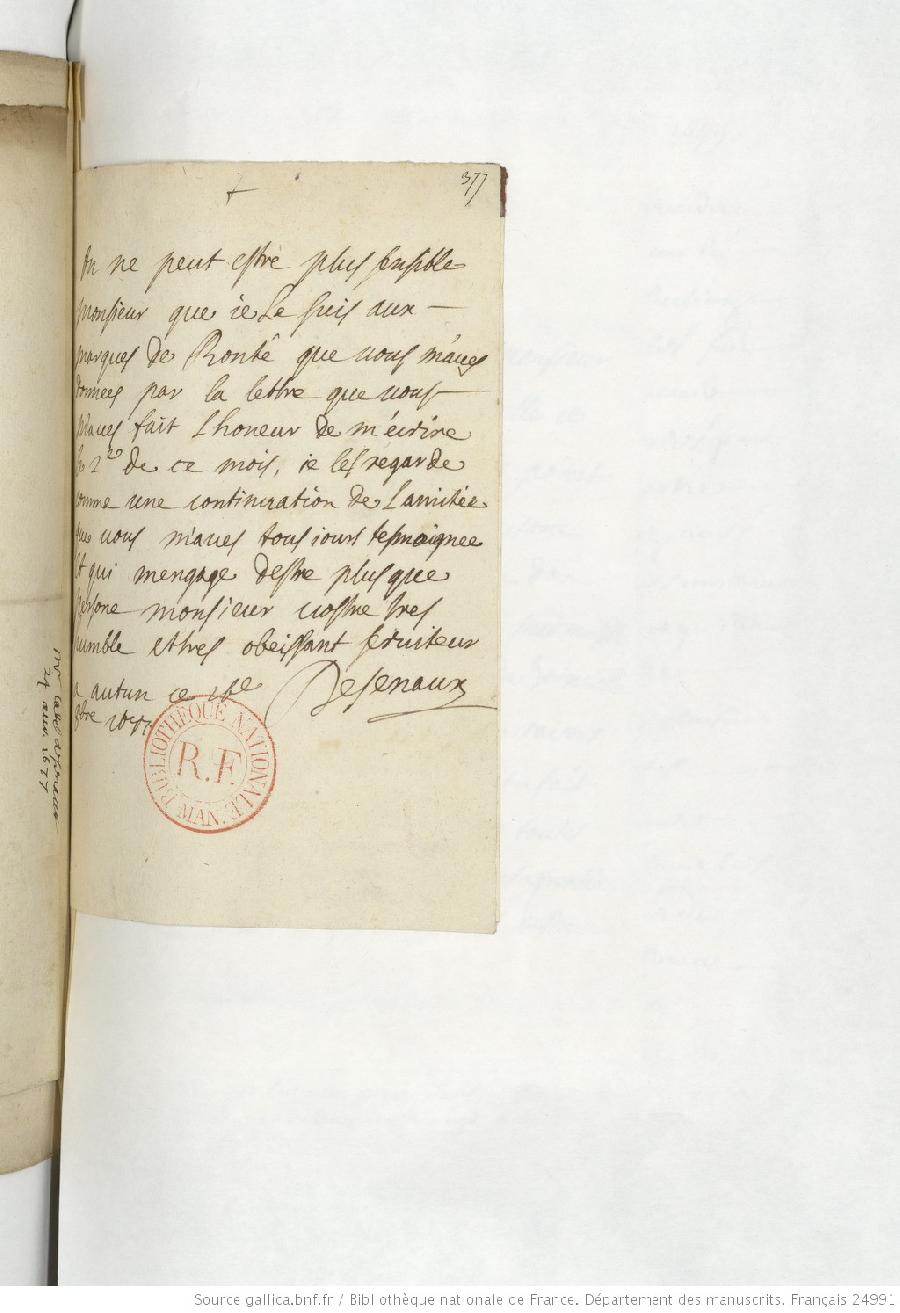 377
On ne peut estre plus sensible
monsieur que ie Le suis aux
marques de Bonté que vous m'aues
données par la lettre que vous
m'aues fait Lhoneur de m'ecrire
le 2 de ce mois, ie les regarde
comme une continuation de Lamitiée
que vous m'aues tousiours tesmoignee
Et qui mengage destre plus que
persone monsieur vostre tres
humble et tres obeissant seruiteur
a autun ce
Desenaux
BIBLIOTHÈQUE NATIONALE
R.F.
MAN.
1677
Source gallica.bnf.fr / Bibliothèque nationale de France. Département des manuscrits. Français 24991